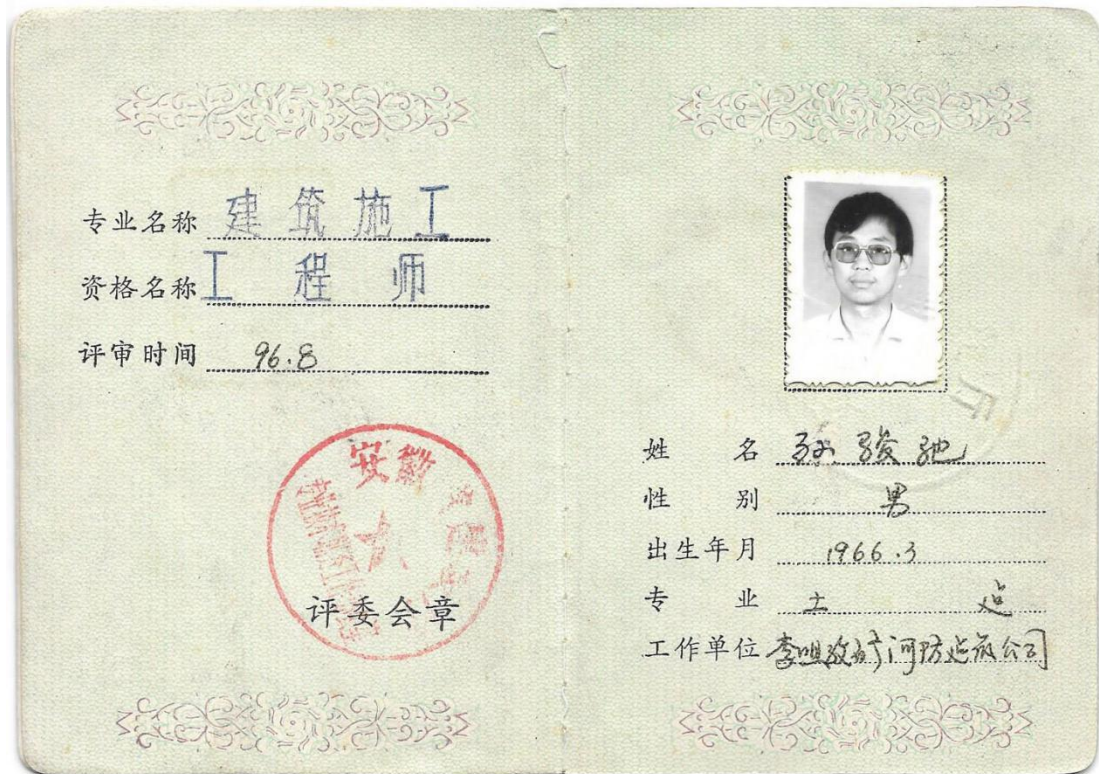 专业名称 建筑施工
资格名称 工程师
评审时间 96.8
安徽
评委会章
姓名 孙骏驰
性别 男
出生年月 1966.3
专业 土建
工作单位 公司